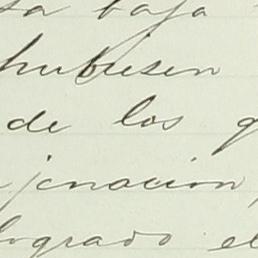 sa baja
hubiesen
de los q
jenacion,
logrado el